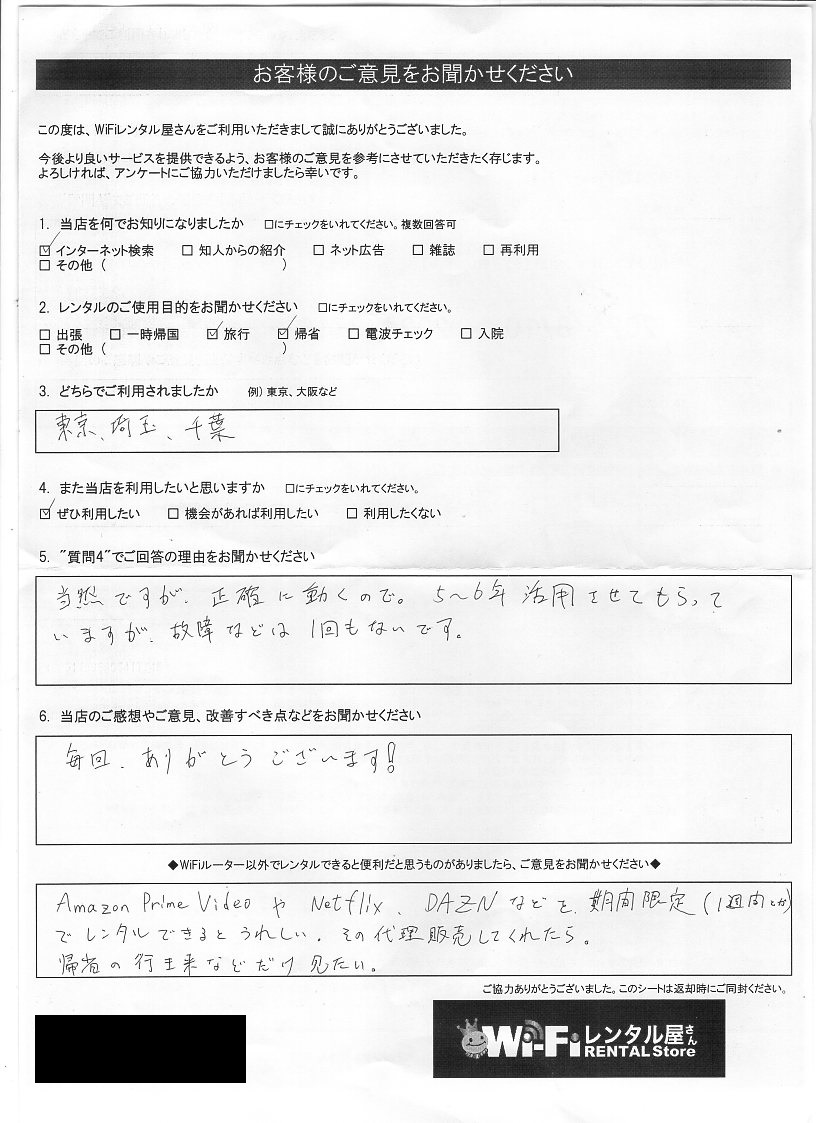 お客様のご意見をお聞かせください
この度は、WiFiレンタル屋さんをご利用いただきまして誠にありがとうございました。
今後より良いサービスを提供できるよう、お客様のご意見を参考にさせていただきたく存じます。
よろしければ、アンケートにご協力いただけましたら幸いです。
1. 当店を何でお知りになりましたか □にチェックをいれてください。複数回答可
☑ インターネット検索 □ 知人からの紹介 □ ネット広告 □ 雑誌 □ 再利用
□ その他 ( )
2. レンタルのご使用目的をお聞かせください □にチェックをいれてください。
□ 出張 □ 一時帰国 ☑ 旅行 ☑ 帰省 □ 電波チェック □ 入院
□ その他 ( )
3. どちらでご利用されましたか 例) 東京、大阪など
東京、埼玉、千葉
4. また当店を利用したいと思いますか □にチェックをいれてください。
☑ ぜひ利用したい □ 機会があれば利用したい □ 利用したくない
5. "質問4"でご回答の理由をお聞かせください
当然ですが、正確に動くので。5〜6年活用させてもらって
いますが、故障などは1回もないです。
6. 当店のご感想やご意見、改善すべき点などをお聞かせください
毎回、ありがとうございます!
◆WiFiルーター以外でレンタルできると便利だと思うものがありましたら、ご意見をお聞かせください◆
Amazon Prime Videoや Netflix、DAZNなどを、期間限定(1週間とか)
でレンタルできるとうれしい。その代理販売してくれたら。
帰省の行き来などだけ見たい。
ご協力ありがとうございました。このシートは返却時にご同封ください。
Wi-Fiレンタル屋さん
RENTAL Store